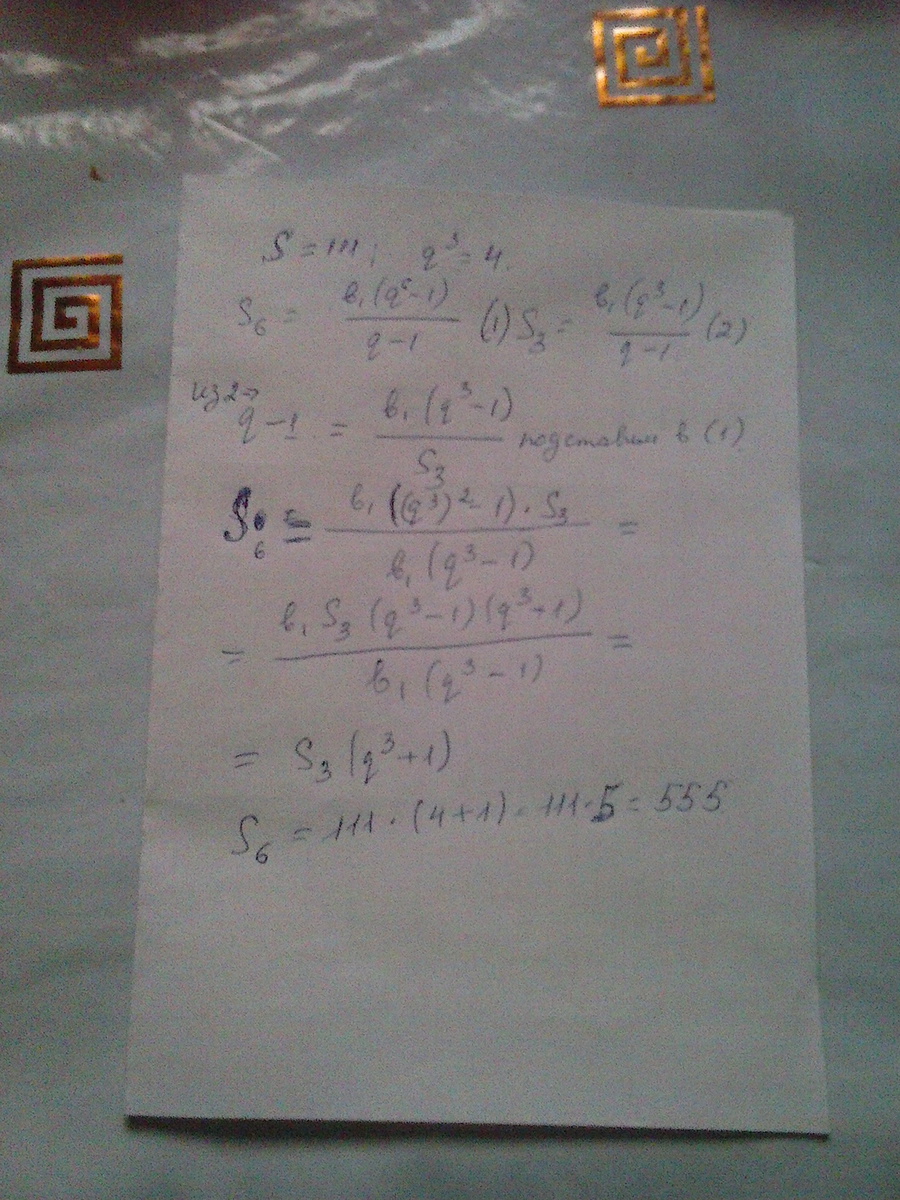 S = 111; q³ = 4.
S₆ = b₁(q⁶-1)/(q-1) (1) S₃ = b₁(q³-1)/(q-1) (2)
из 2→
q-1 = b₁(q³-1)/S₃ подставим в (1)
S₆ = b₁((q³)²-1)·S₃/(b₁(q³-1)) =
= b₁S₃(q³-1)(q³+1)/(b₁(q³-1)) =
= S₃(q³+1)
S₆ = 111·(4+1) = 111·5 = 555